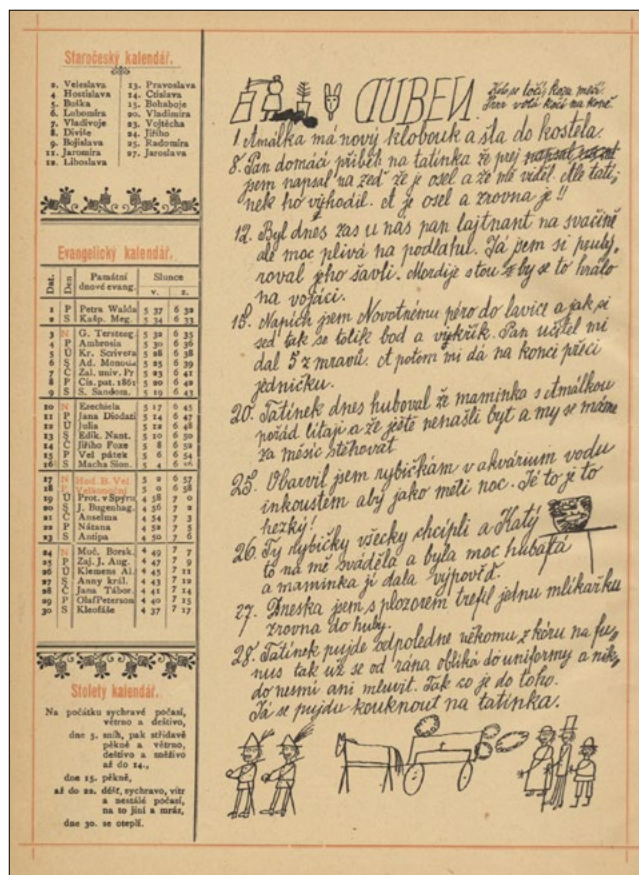 Staročeský kalendář.
2. Veleslava
4 Hostislava
5. Buška
6. Lubomíra
7. Vladivoje
8. Diviše
9. Bojislava
11. Jaromíra
12. Liboslava
13. Pravoslava
14. Ctislava
15. Bohaboje
20. Vladimíra
23. Vojtěcha
24. Jiřího
25. Radomíra
27. Jaroslava
Evangelický kalendář.
Dat. Den Památní dnové evang. Slunce
v. z.
1 P Petra Walda 5 37 6 32
2 S Kašp. Meg. 5 34 6 33
3 N G. Tersteeg. 5 32 6 35
4 P Ambrosia 5 30 6 36
5 Ú Kr. Scrivera 5 28 6 38
6 S Ad. Monoda 5 25 6 39
7 Č Zal. univ. Pr 5 23 6 41
8 P Cís. pat. 1861 5 20 6 42
9 S S. Sandom. 5 19 6 43
10 N Ezechiela 5 17 6 45
11 P Jana Diodati 5 14 6 47
12 Ú Julia 5 12 6 48
13 S Edik. Nant. 5 10 6 50
14 Č Jiřího Foxe 5 8 6 52
15 P Vel pátek 5 6 6 54
16 S Macha Sion. 5 4 6 56
17 N Hod. B. Vel. 5 2 6 57
18 P Velkonoční 5 0 6 58
19 Ú Prot. v Spýru 4 58 7 0
20 S J. Bugenhag. 4 56 7 2
21 Č Anselma 4 54 7 3
22 P Názana 4 52 7 5
23 S Antipa 4 50 7 6
24 N Muč. Borsk. 4 49 7 7
25 P Zaj. J. Aug. 4 47 7 9
26 Ú Klemens Al. 4 45 7 11
27 S Anny král. 4 43 7 12
28 Č Jana Tábor. 4 41 7 14
29 P Olaf Peterson 4 40 7 15
30 S Kleofáše 4 37 7 17
Stoletý kalendář.
Na počátku sychravé počasí,
větrno a deštivo,
dne 5. sníh, pak střídavě
pěkně a větrno,
deštivo a sněživo
až do 14.,
dne 15. pěkně,
až do 22. déšť, sychravo, vítr
a nestálé počasí,
na to jíní a mráz,
dne 30. se oteplí.
DUBEN.
koza mečí.
volá kočí na koně
1. Amálka má nový klobouk a šla do kostela.
8. Pan domácí příběh na tatínka že prej napsal
jsem napsal na zeď že je osel a že mě viděl. Ale tatí-
nek ho vyhodil. A je osel a zrovna je!!
12. Byl dnes zas u nás pan lajtnant na svačině
ale moc plivá na podlahu. Já jsem si
roval jeho šavli. Mordije s tou by se to hrálo
na vojáci.
15. Napích jsem Novotnému péro do lavice a jak si
sed tak se tolik bod a vykřik. Pan učitel mi
dal 5 z mravů. A potom mi dá na konci přeci
jedničku.
20. Tatínek dnes huboval že maminka s Amálkou
pořád lítají a že ještě nenašli byt a my se máme
za měsíc stěhovat
25. Obarvil jsem rybičkám v akvárium vodu
inkoustem aby jako měli noc. Jé to je to
hezký!
26. Ty rybičky všecky chcíply a Katy
to na mě sváděla a byla moc hubatá
a maminka jí dala výpověď.
27. Dneska jsem s plozorem trefil jednu mlíkařku
zrovna do huby.
28. Tatínek pujde odpoledne někomu z kóru na fu-
nus tak už se od rána oblíká do uniformy a nik-
do nesmí ani mluvit. Tak co je do toho.
Já se pujdu kouknout na tatínka.